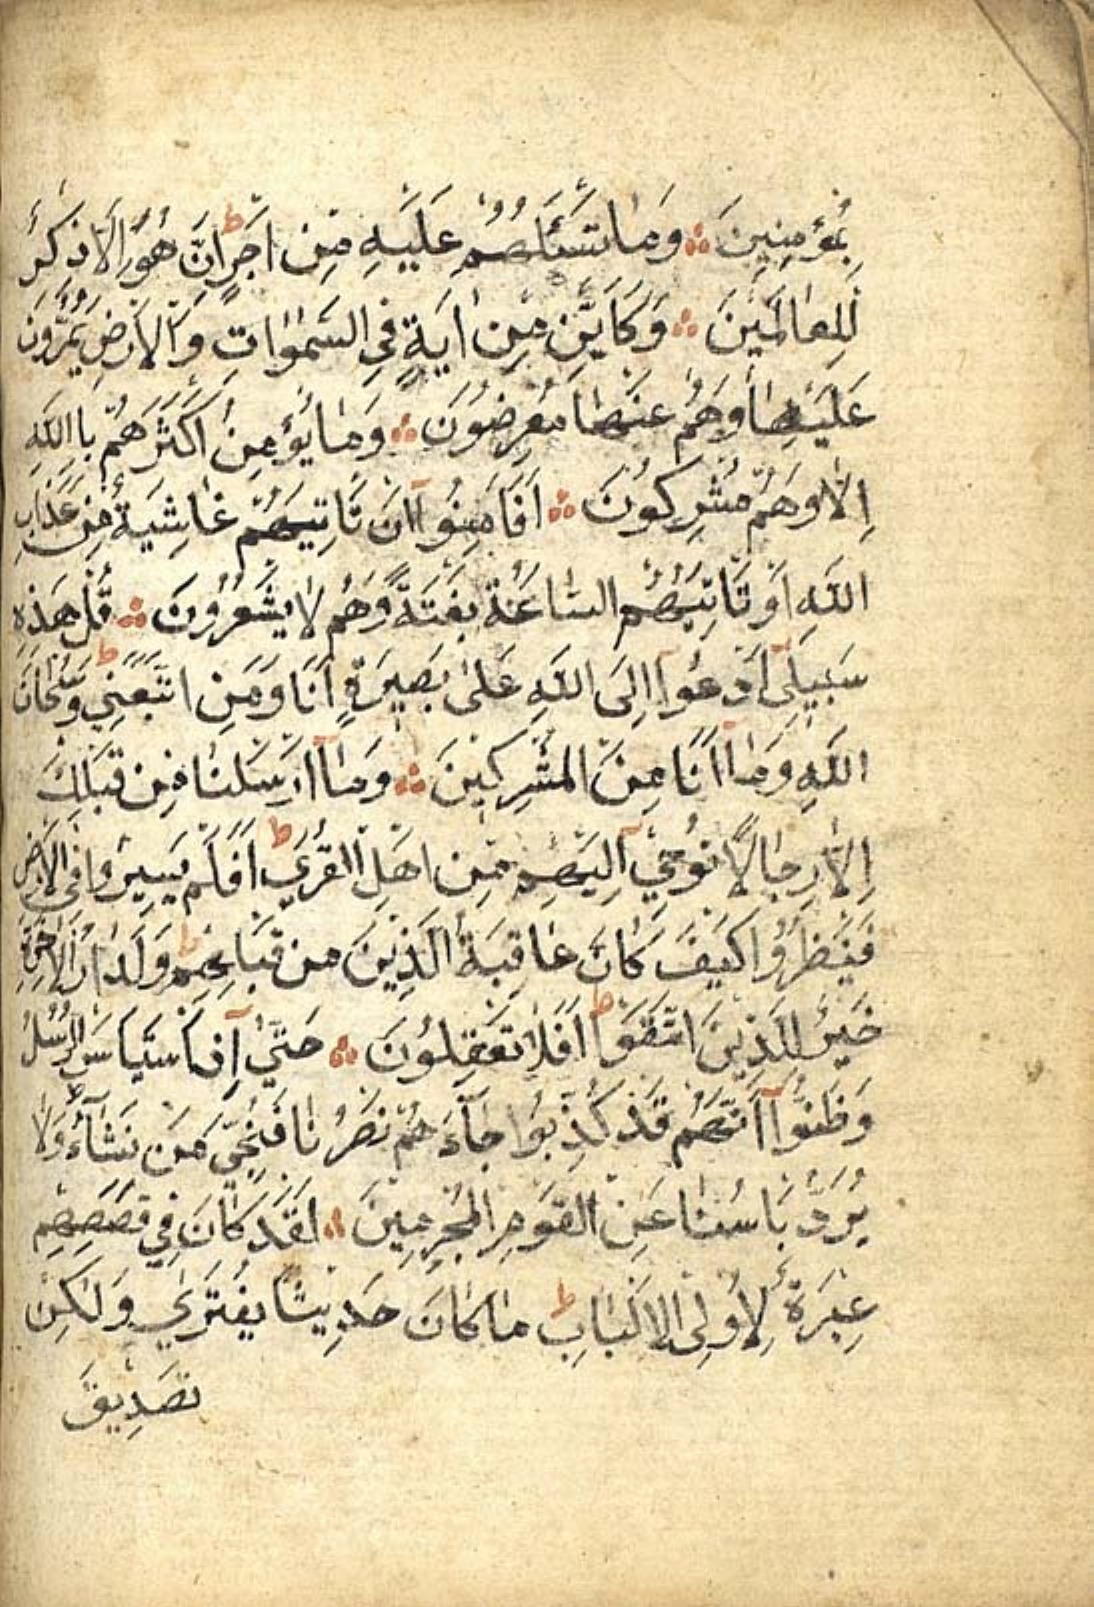 بِمُؤْمِنِينَ ۞ وَمَا تَسْئَلُهُمْ عَلَيْهِ مِنْ اَجْرٍ ط اِنْ هُوَ اِلَّا ذِكْرٌ
لِلْعَالَمِينَ ۞ وَكَاَيِّنْ مِنْ اٰيَةٍ فِي السَّمٰوَاتِ وَالْاَرْضِ يَمُرُّونَ
عَلَيْهَا وَهُمْ عَنْهَا مُعْرِضُونَ ۞ وَمَا يُؤْمِنُ اَكْثَرُهُمْ بِاللّٰهِ
اِلَّا وَهُمْ مُشْرِكُونَ ۞ اَفَاَمِنُوا اَنْ تَاْتِيَهُمْ غَاشِيَةٌ مِنْ عَذَابِ
اللّٰهِ اَوْ تَاْتِيَهُمُ السَّاعَةُ بَغْتَةً وَهُمْ لَا يَشْعُرُونَ ۞ قُلْ هٰذِهِ
سَبِيلِي اَدْعُوا اِلَى اللّٰهِ عَلٰى بَصِيرَةٍ اَنَا وَمَنِ اتَّبَعَنِي ط وَسُبْحَانَ
اللّٰهِ وَمَا اَنَا مِنَ الْمُشْرِكِينَ ۞ وَمَا اَرْسَلْنَا مِنْ قَبْلِكَ
اِلَّا رِجَالًا نُوحِي اِلَيْهِمْ مِنْ اَهْلِ الْقُرٰى ط اَفَلَمْ يَسِيرُوا فِي الْاَرْضِ
فَيَنْظُرُوا كَيْفَ كَانَ عَاقِبَةُ الَّذِينَ مِنْ قَبْلِهِمْ ط وَلَدَارُ الْاٰخِرَةِ
خَيْرٌ لِلَّذِينَ اتَّقَوْا ط اَفَلَا تَعْقِلُونَ ۞ حَتّٰى اِذَا اسْتَيْاَسَ الرُّسُلُ
وَظَنُّوا اَنَّهُمْ قَدْ كُذِبُوا جَاءَهُمْ نَصْرُنَا فَنُجِّيَ مَنْ نَشَاءُ ط وَلَا
يُرَدُّ بَاْسُنَا عَنِ الْقَوْمِ الْمُجْرِمِينَ ۞ لَقَدْ كَانَ فِي قَصَصِهِمْ
عِبْرَةٌ لِاُولِي الْاَلْبَابِ ط مَا كَانَ حَدِيثًا يُفْتَرٰى وَلٰكِنْ
تَصْدِيقَ